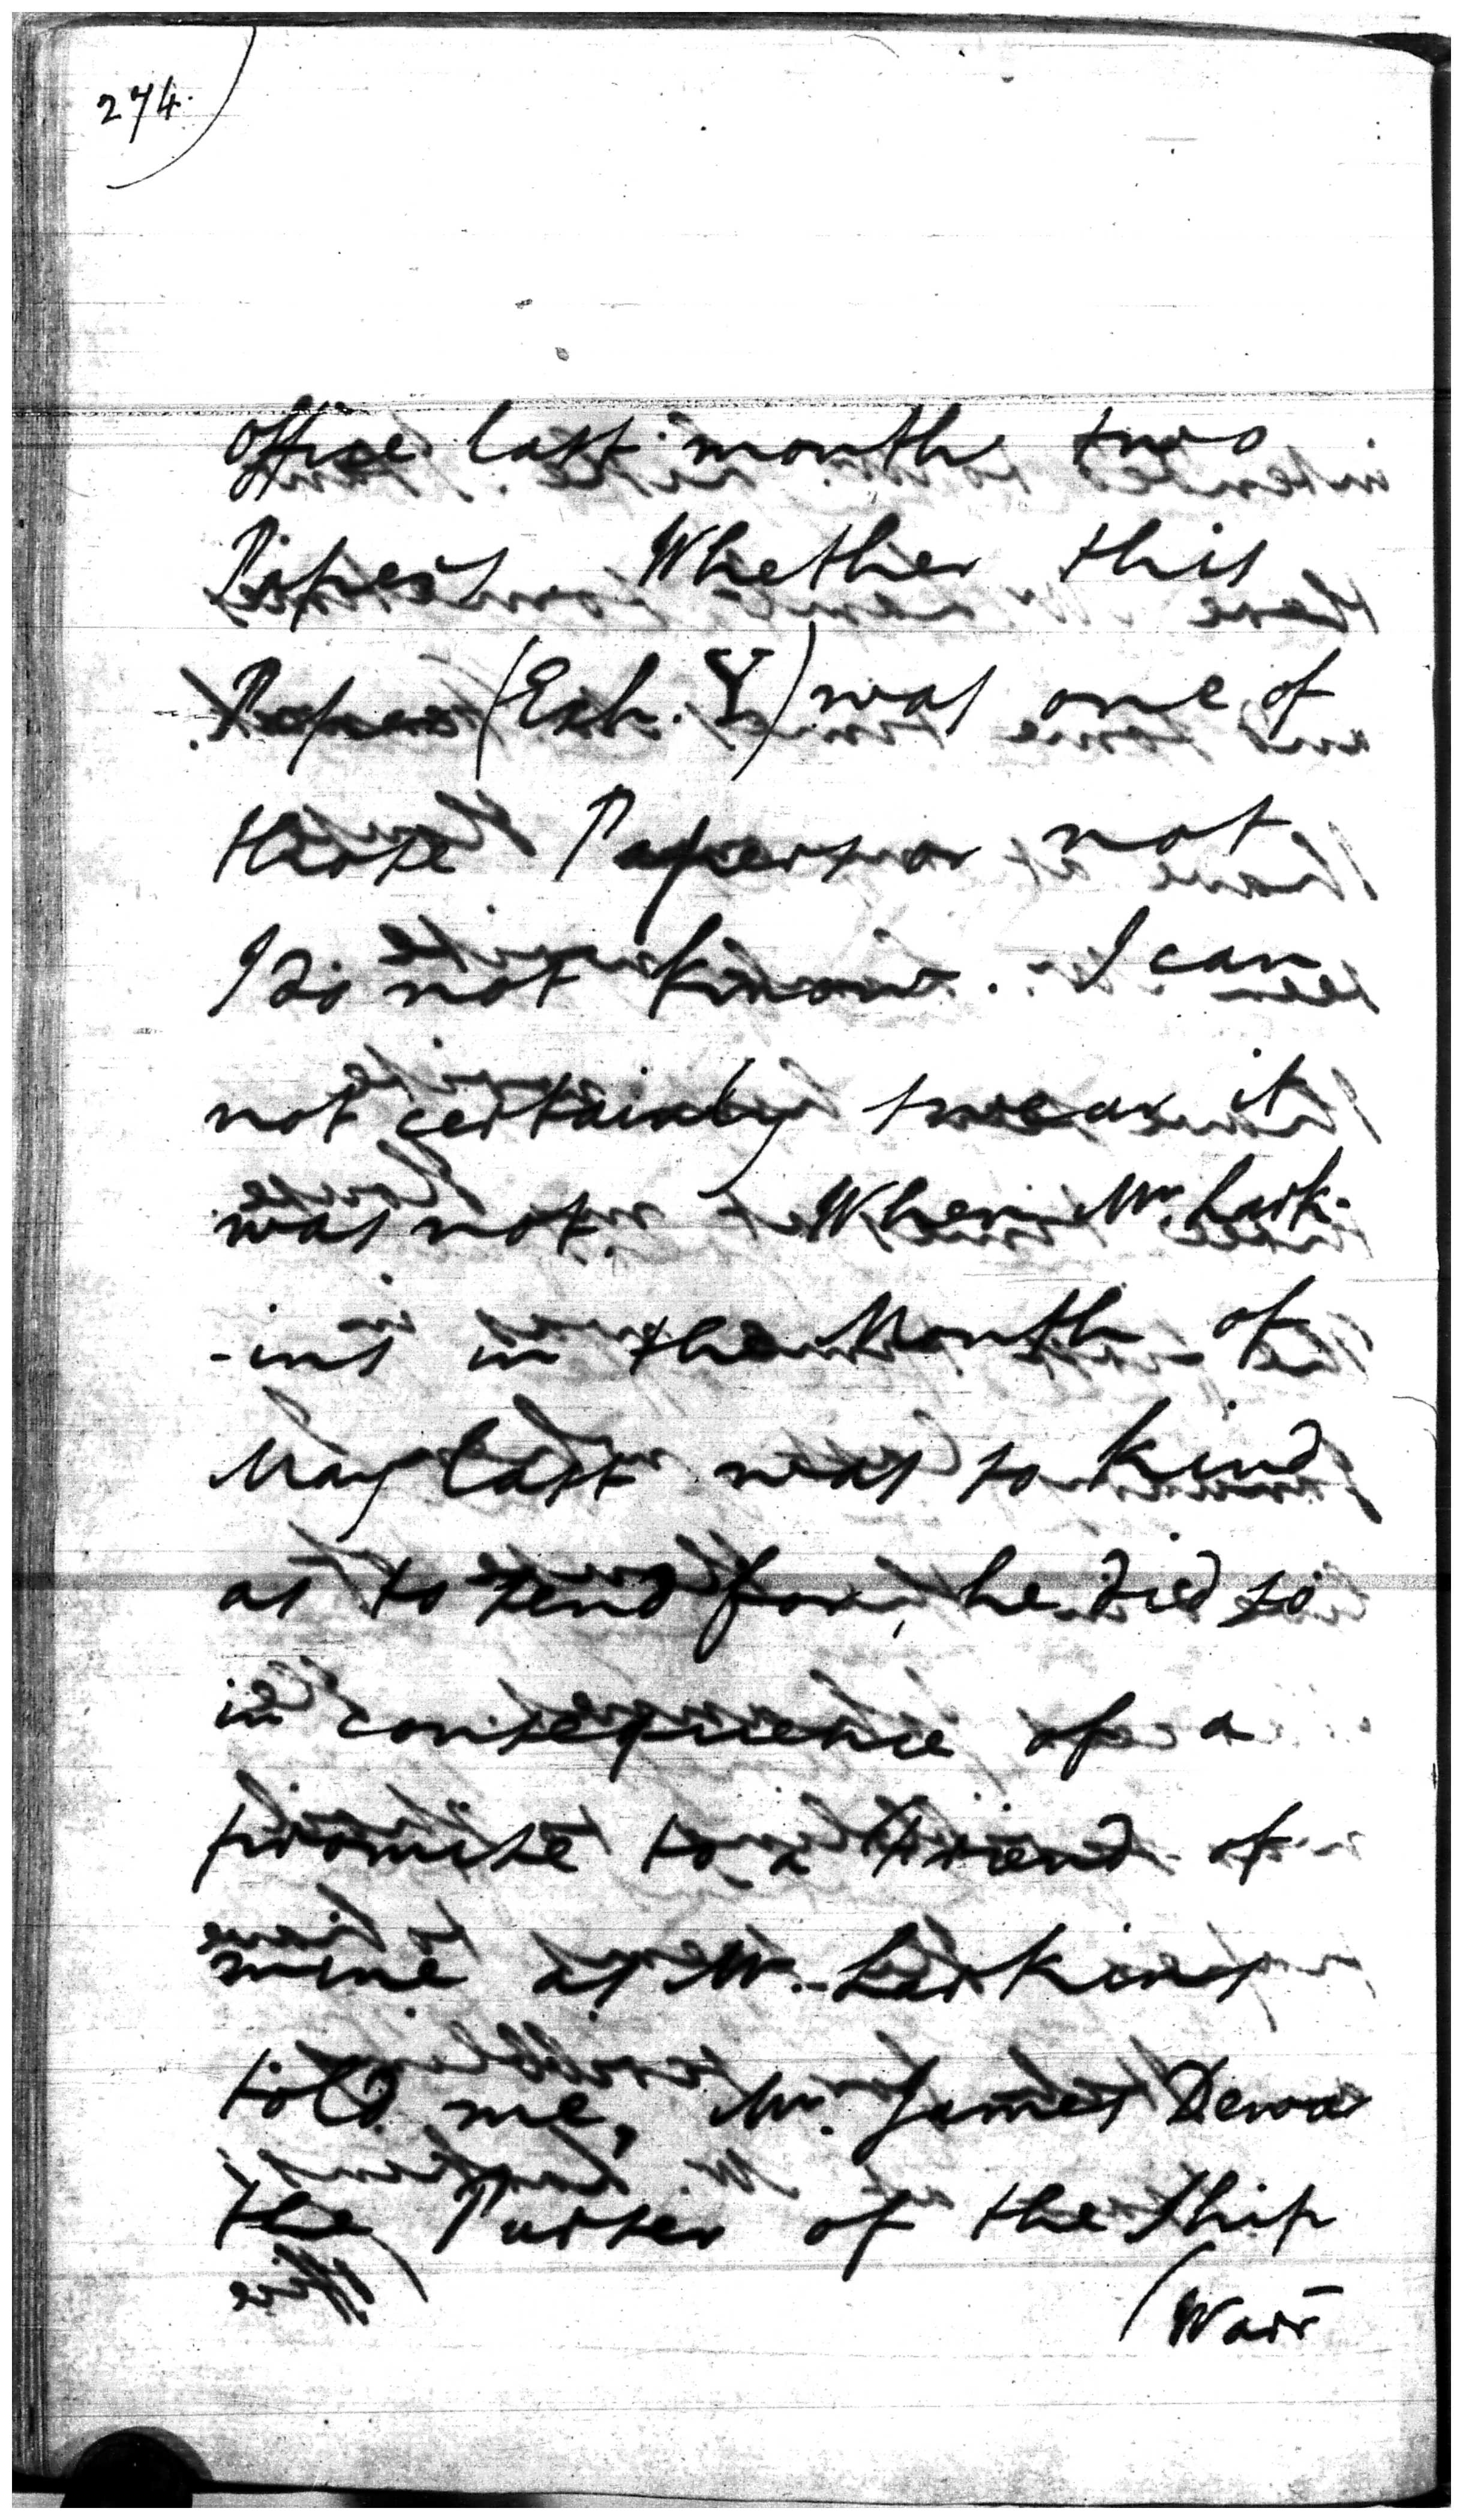 274.
Office last month two
Papers Whether this
Paper (Exh. Y) was one of
those Papers or not
I do not know. I can
not certainly swear it
was not. When Mr. Lark-
-ins in the Month of
May last was so kind
as to send for, he did so
in consequence of a
promise to a Friend of
mine as Mr. Larkins
told me, Mr. James Dewar
the Purser of the Ship
(Warr